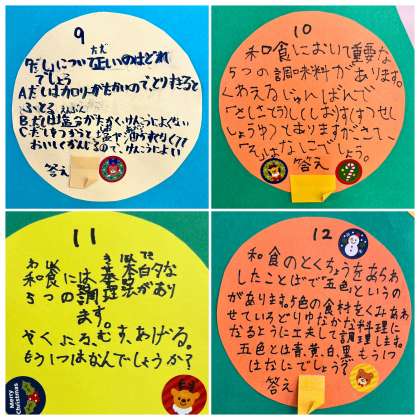 9
ただ
だしについて正しいのはどれ
でしょう
Aだしはカロリーがたかいので、とりすぎると
ふとる
えんぶん
B だしは塩分がたかく、けんこうによくない
C だしをつかうと
おいしくかんじるので、けんこうによい
答え
10
和食において重要な
5つの調味料があります。
くわえるじゅんばんで
「さしすせそ」
答え
11
わ しょく き ほん てき
和食には基本的な
5つの調理法があり
ます。
やく、にる、むす、あげる。
もう1つはなんでしょうか?
Merry Christmas
12
和食のとくちょうをあらわ
したことばで「五色」というの
があります。5色の食材をくみあわ
せているどりゆたかな料理に
なるように工夫して調理します。
五色とは青、黄、白、黒、もう1つ
はなにでしょう?
答え